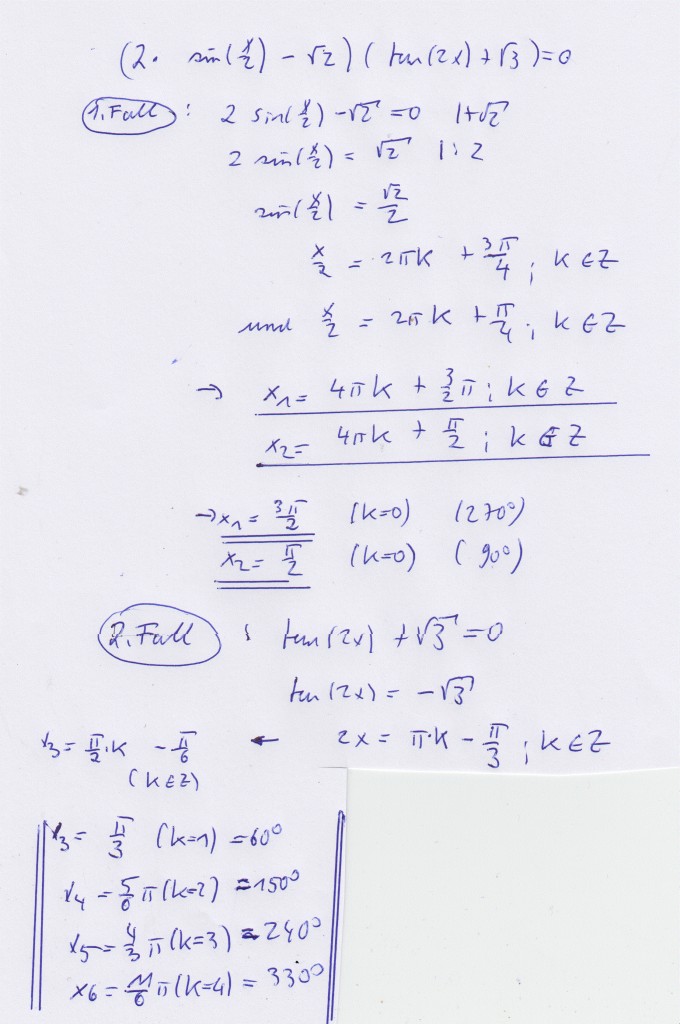 (2 · sin(x/2) - √2) (tan(2x) + √3) = 0
1. Fall : 2 sin(x/2) - √2 = 0 |+√2
2 sin(x/2) = √2 |: 2
sin(x/2) = √2/2
x/2 = 2πk + 3π/4 ; k ∈ Z
und x/2 = 2πk + π/4 ; k ∈ Z
→ x₁ = 4πk + 3/2 π ; k ∈ Z
x₂ = 4πk + π/2 ; k ∈ Z
→ x₁ = 3π/2 (k=0) (270°)
x₂ = π/2 (k=0) (90°)
2. Fall : tan(2x) + √3 = 0
tan(2x) = -√3
x₃ = π/2 · k - π/6 ← 2x = π·k - π/3 ; k ∈ Z
(k ∈ Z)
x₃ = π/3 (k=1) = 60°
x₄ = 5/6 π (k=2) = 150°
x₅ = 4/3 π (k=3) = 240°
x₆ = 11/6 π (k=4) = 330°